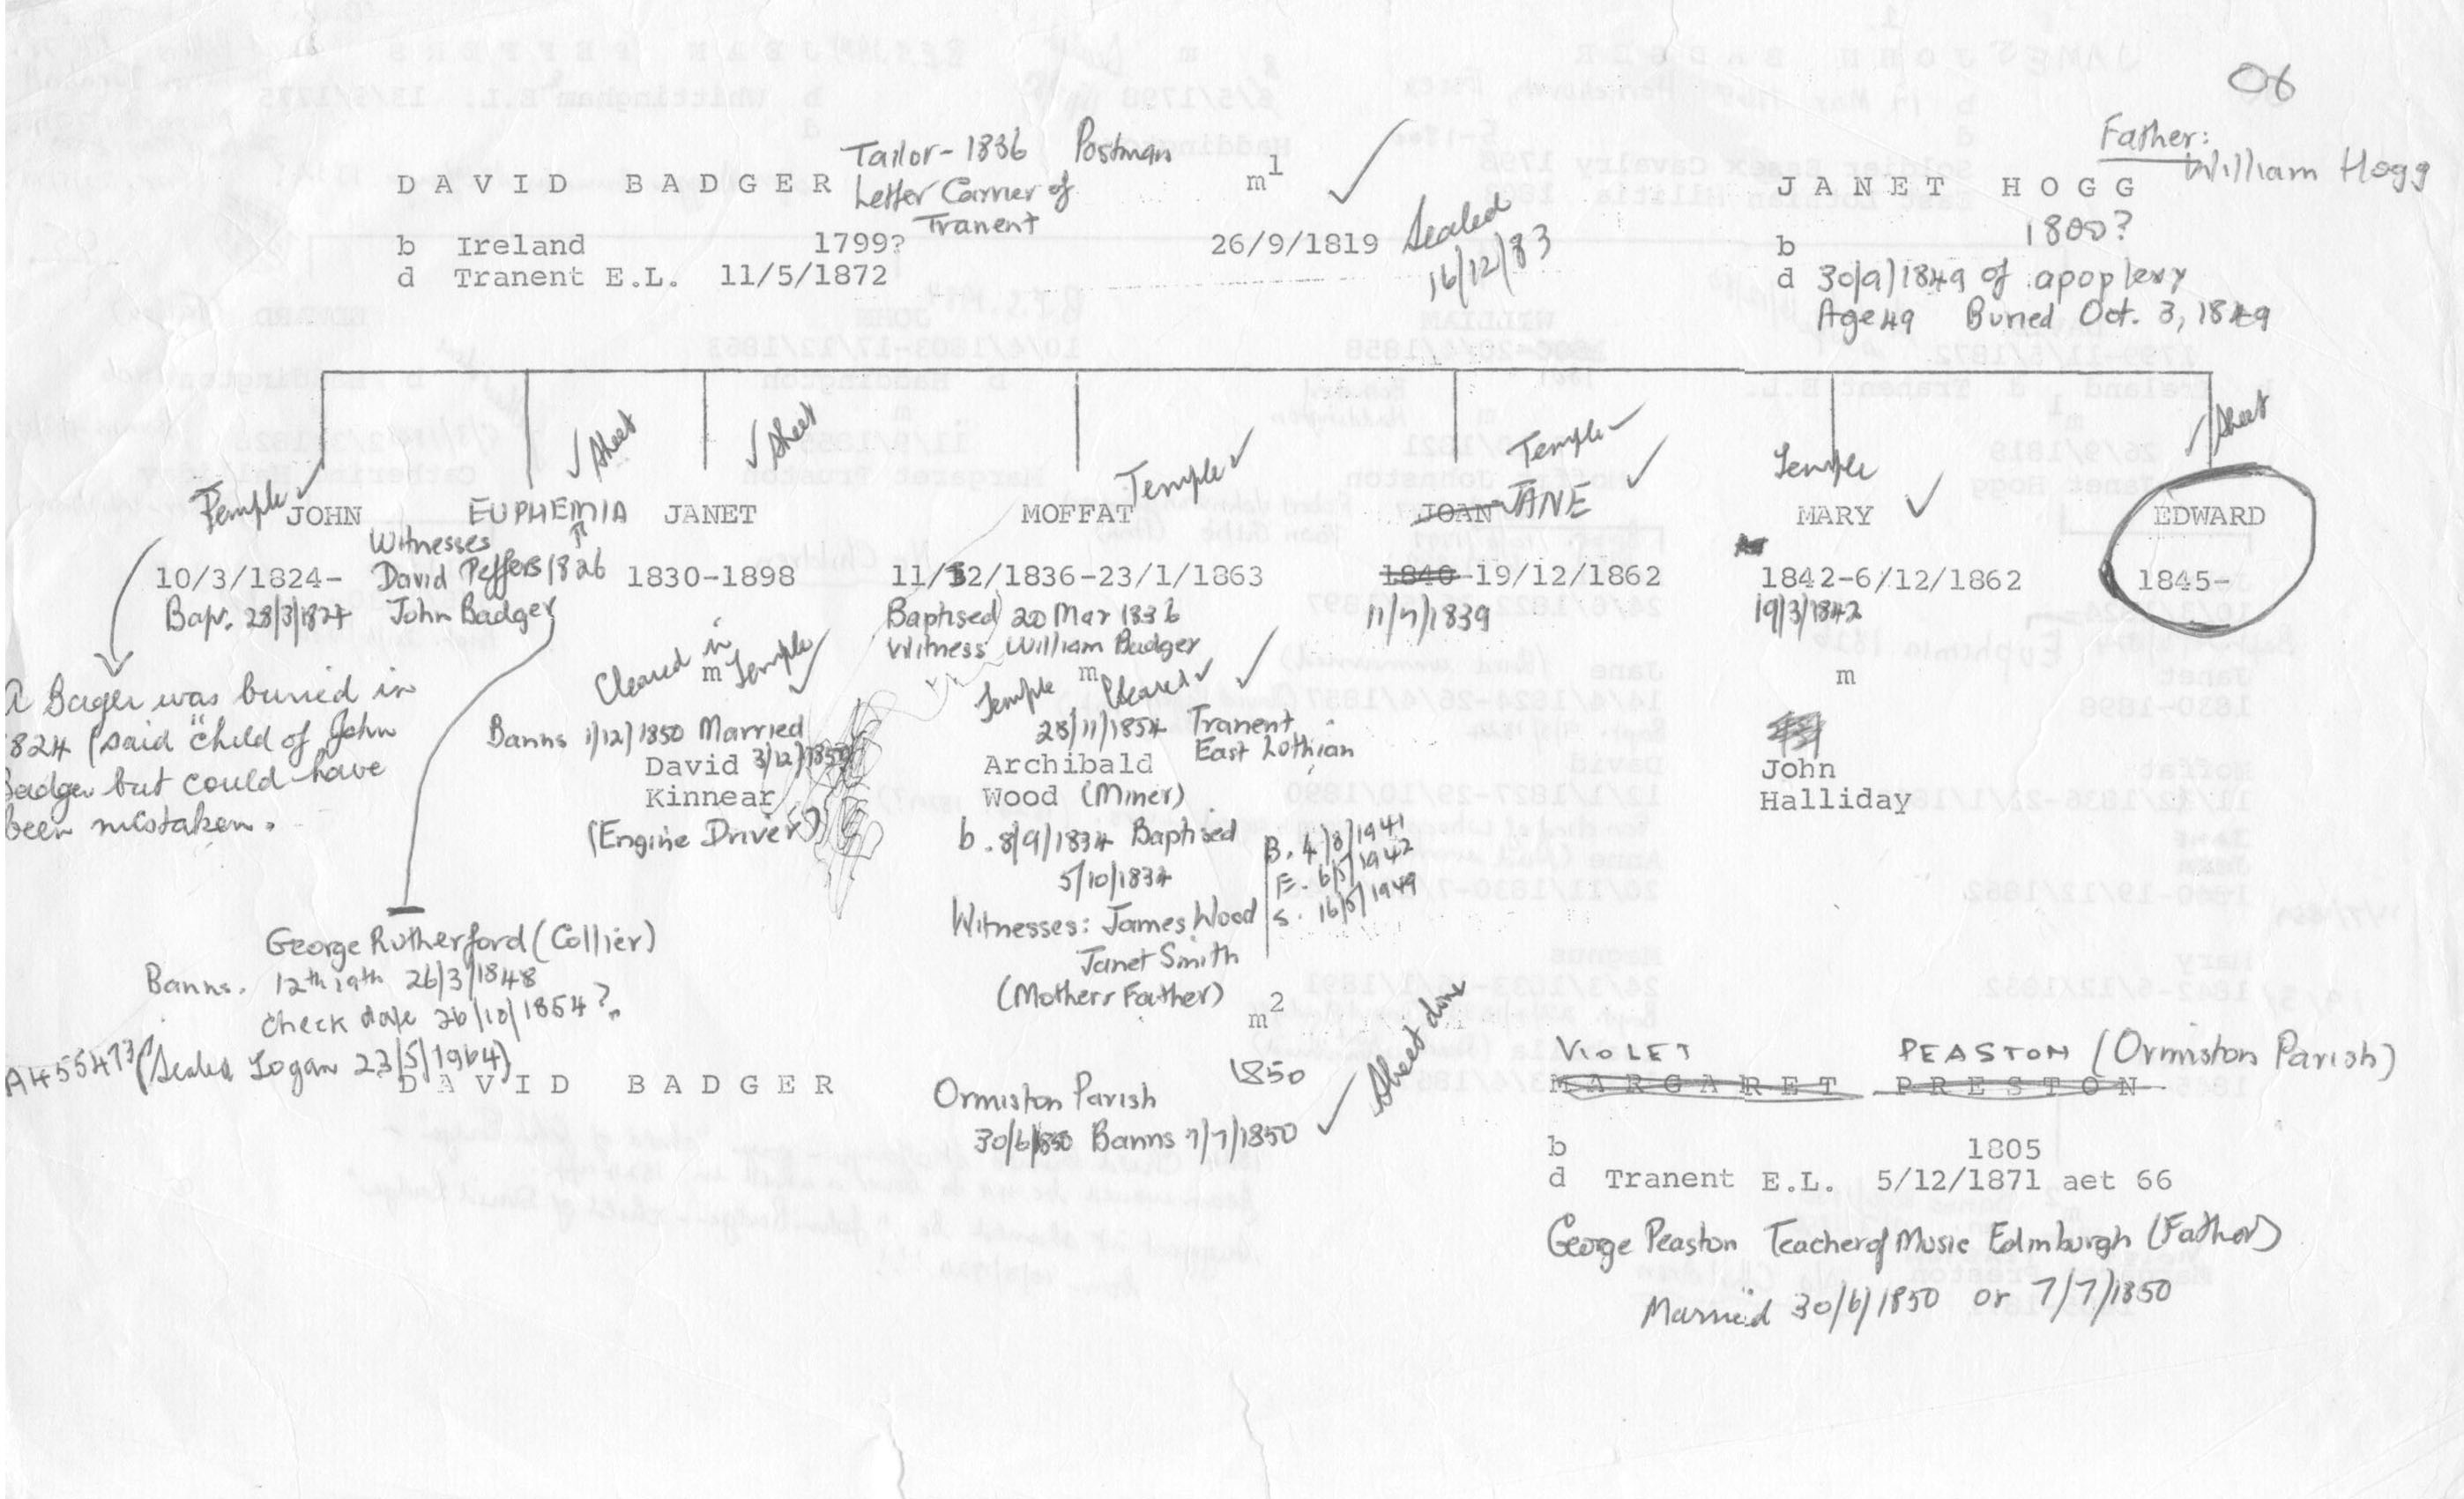 06
Father:
William Hogg
Tailor-1836 Postman
DAVID BADGER
Letter Carrier of
Tranent
m1
JANET HOGG
b Ireland 1799?
d Tranent E.L. 11/5/1872
26/9/1819
Sealed
16/12/83
b 1800?
d 30/9/1849 of apoplexy
Age 49 Buried Oct. 3, 1849
Temple JOHN
10/3/1824-
Bap. 28/3/1824
A Bager was buried in
824 (said "child of John
Badger but could have
been mistaken.
Sheet
EUPHEMIA
Witnesses
David Peffers 1826
John Badger
George Rutherford (Collier)
Banns. 12th 19th 26/3/1848
check date 26/10/1854?
A455473 (Sealed Logan 23/5/1964)
Sheet
JANET
1830-1898
Cleared in
m Temple
Banns 1/12/1850 Married
David 3/12/1850
Kinnear
(Engine Driver)
Temple
MOFFAT
11/2/1836-23/1/1863
Baptised 20 Mar 1836
Witness William Badger
m
Temple Cleared
28/11/1854 Tranent
East Lothian
Archibald
Wood (Miner)
b. 8/9/1834 Baptised
5/10/1834
B. 4/8/1941
E. 6/5/1942
S. 16/5/1949
Witnesses: James Wood
Janet Smith
(Mothers Father)
Temple
JOAN JANE
1840-19/12/1862
11/7/1839
Temple
MARY
1842-6/12/1862
19/3/1842
m
John
Halliday
Sheet
EDWARD
1845-
DAVID BADGER
m2
1850
Sheet done
Ormiston Parish
30/6/1850 Banns 7/7/1850
VIOLET PEASTON (Ormiston Parish)
MARGARET PRESTON
b 1805
d Tranent E.L. 5/12/1871 aet 66
George Peaston Teacher of Music Edinburgh (Father)
Married 30/6/1850 or 7/7/1850